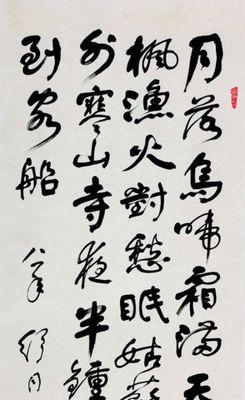 月落烏啼霜滿天
楓漁火對愁眠姑蘇
外寒山寺夜半鐘
到客船
八十 舒同